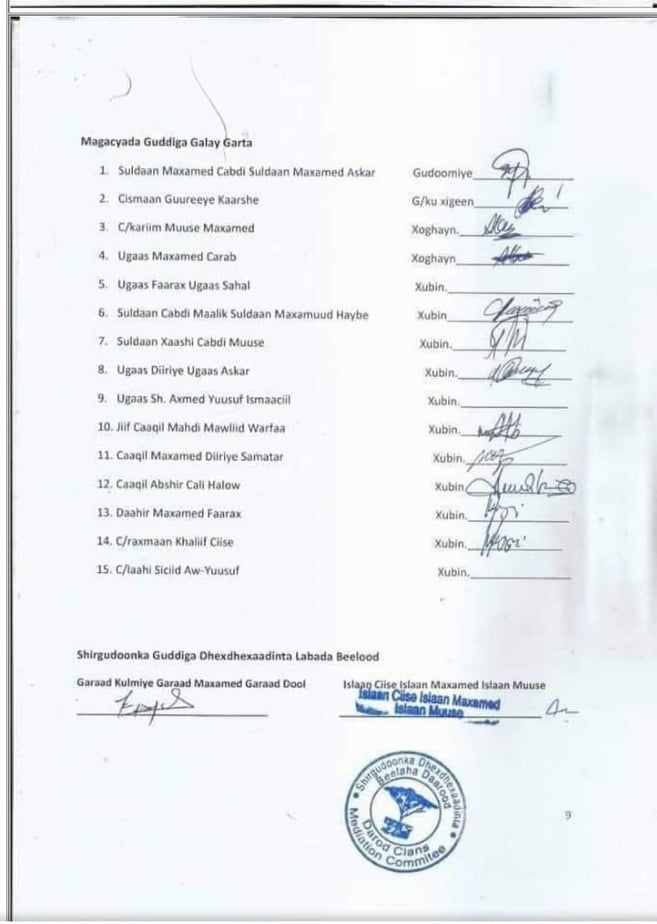 Magacyada Guddiga Galay Garta
1. Suldaan Maxamed Cabdi Suldaan Maxamed Askar Gudoomiye
2. Cismaan Guureeye Kaarshe G/ku xigeen
3. C/kariim Muuse Maxamed Xoghayn.
4. Ugaas Maxamed Carab Xoghayn
5. Ugaas Faarax Ugaas Sahal Xubin.
6. Suldaan Cabdi Maalik Suldaan Maxamuud Haybe Xubin
7. Suldaan Xaashi Cabdi Muuse Xubin.
8. Ugaas Diiriye Ugaas Askar Xubin.
9. Ugaas Sh. Axmed Yuusuf Ismaaciil Xubin.
10. Jiif Caaqil Mahdi Mawliid Warfaa Xubin.
11. Caaqil Maxamed Diiriye Samatar Xubin.
12. Caaqil Abshir Cali Halow Xubin
13. Daahir Maxamed Faarax Xubin.
14. C/raxmaan Khaliif Ciise Xubin.
15. C/laahi Siciid Aw-Yuusuf Xubin.
Shirgudoonka Guddiga Dhexdhexaadinta Labada Beelood
Garaad Kulmiye Garaad Maxamed Garaad Dool Islaan Ciise Islaan Maxamed Islaan Muuse
Islaan Ciise Islaan Maxamed
Islaan Muuse
Shirgudoonka Dhexdhexaadinta
Beelaha Daarood
Darod Clans
Mediation Commitee
9